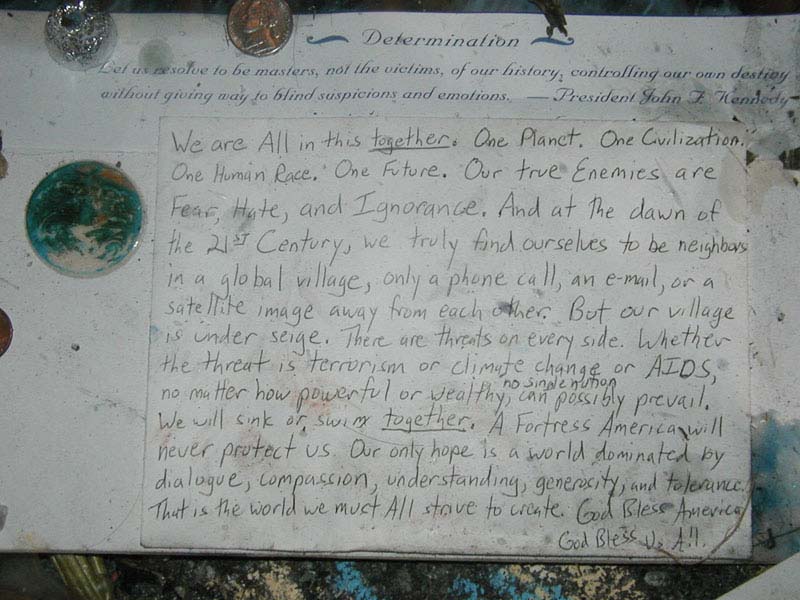 Determination
Let us resolve to be masters, not the victims, of our history, controlling our own destiny
without giving way to blind suspicions and emotions. — President John F. Kennedy
We are All in this together. One Planet. One Civilization.
One Human Race. One Future. Our true Enemies are
Fear, Hate, and Ignorance. And at the dawn of
the 21st Century, we truly find ourselves to be neighbors
in a global village, only a phone call, an e-mail, or a
satellite image away from each other. But our village
is under seige. There are threats on every side. Whether
the threat is terrorism or climate change or AIDS,
no matter how powerful or wealthy, no single nation can possibly prevail.
We will sink or swim together. A Fortress America will
never protect us. Our only hope is a world dominated by
dialogue, compassion, understanding, generosity, and tolerance.
That is the world we must All strive to create. God Bless America
God Bless Us All.